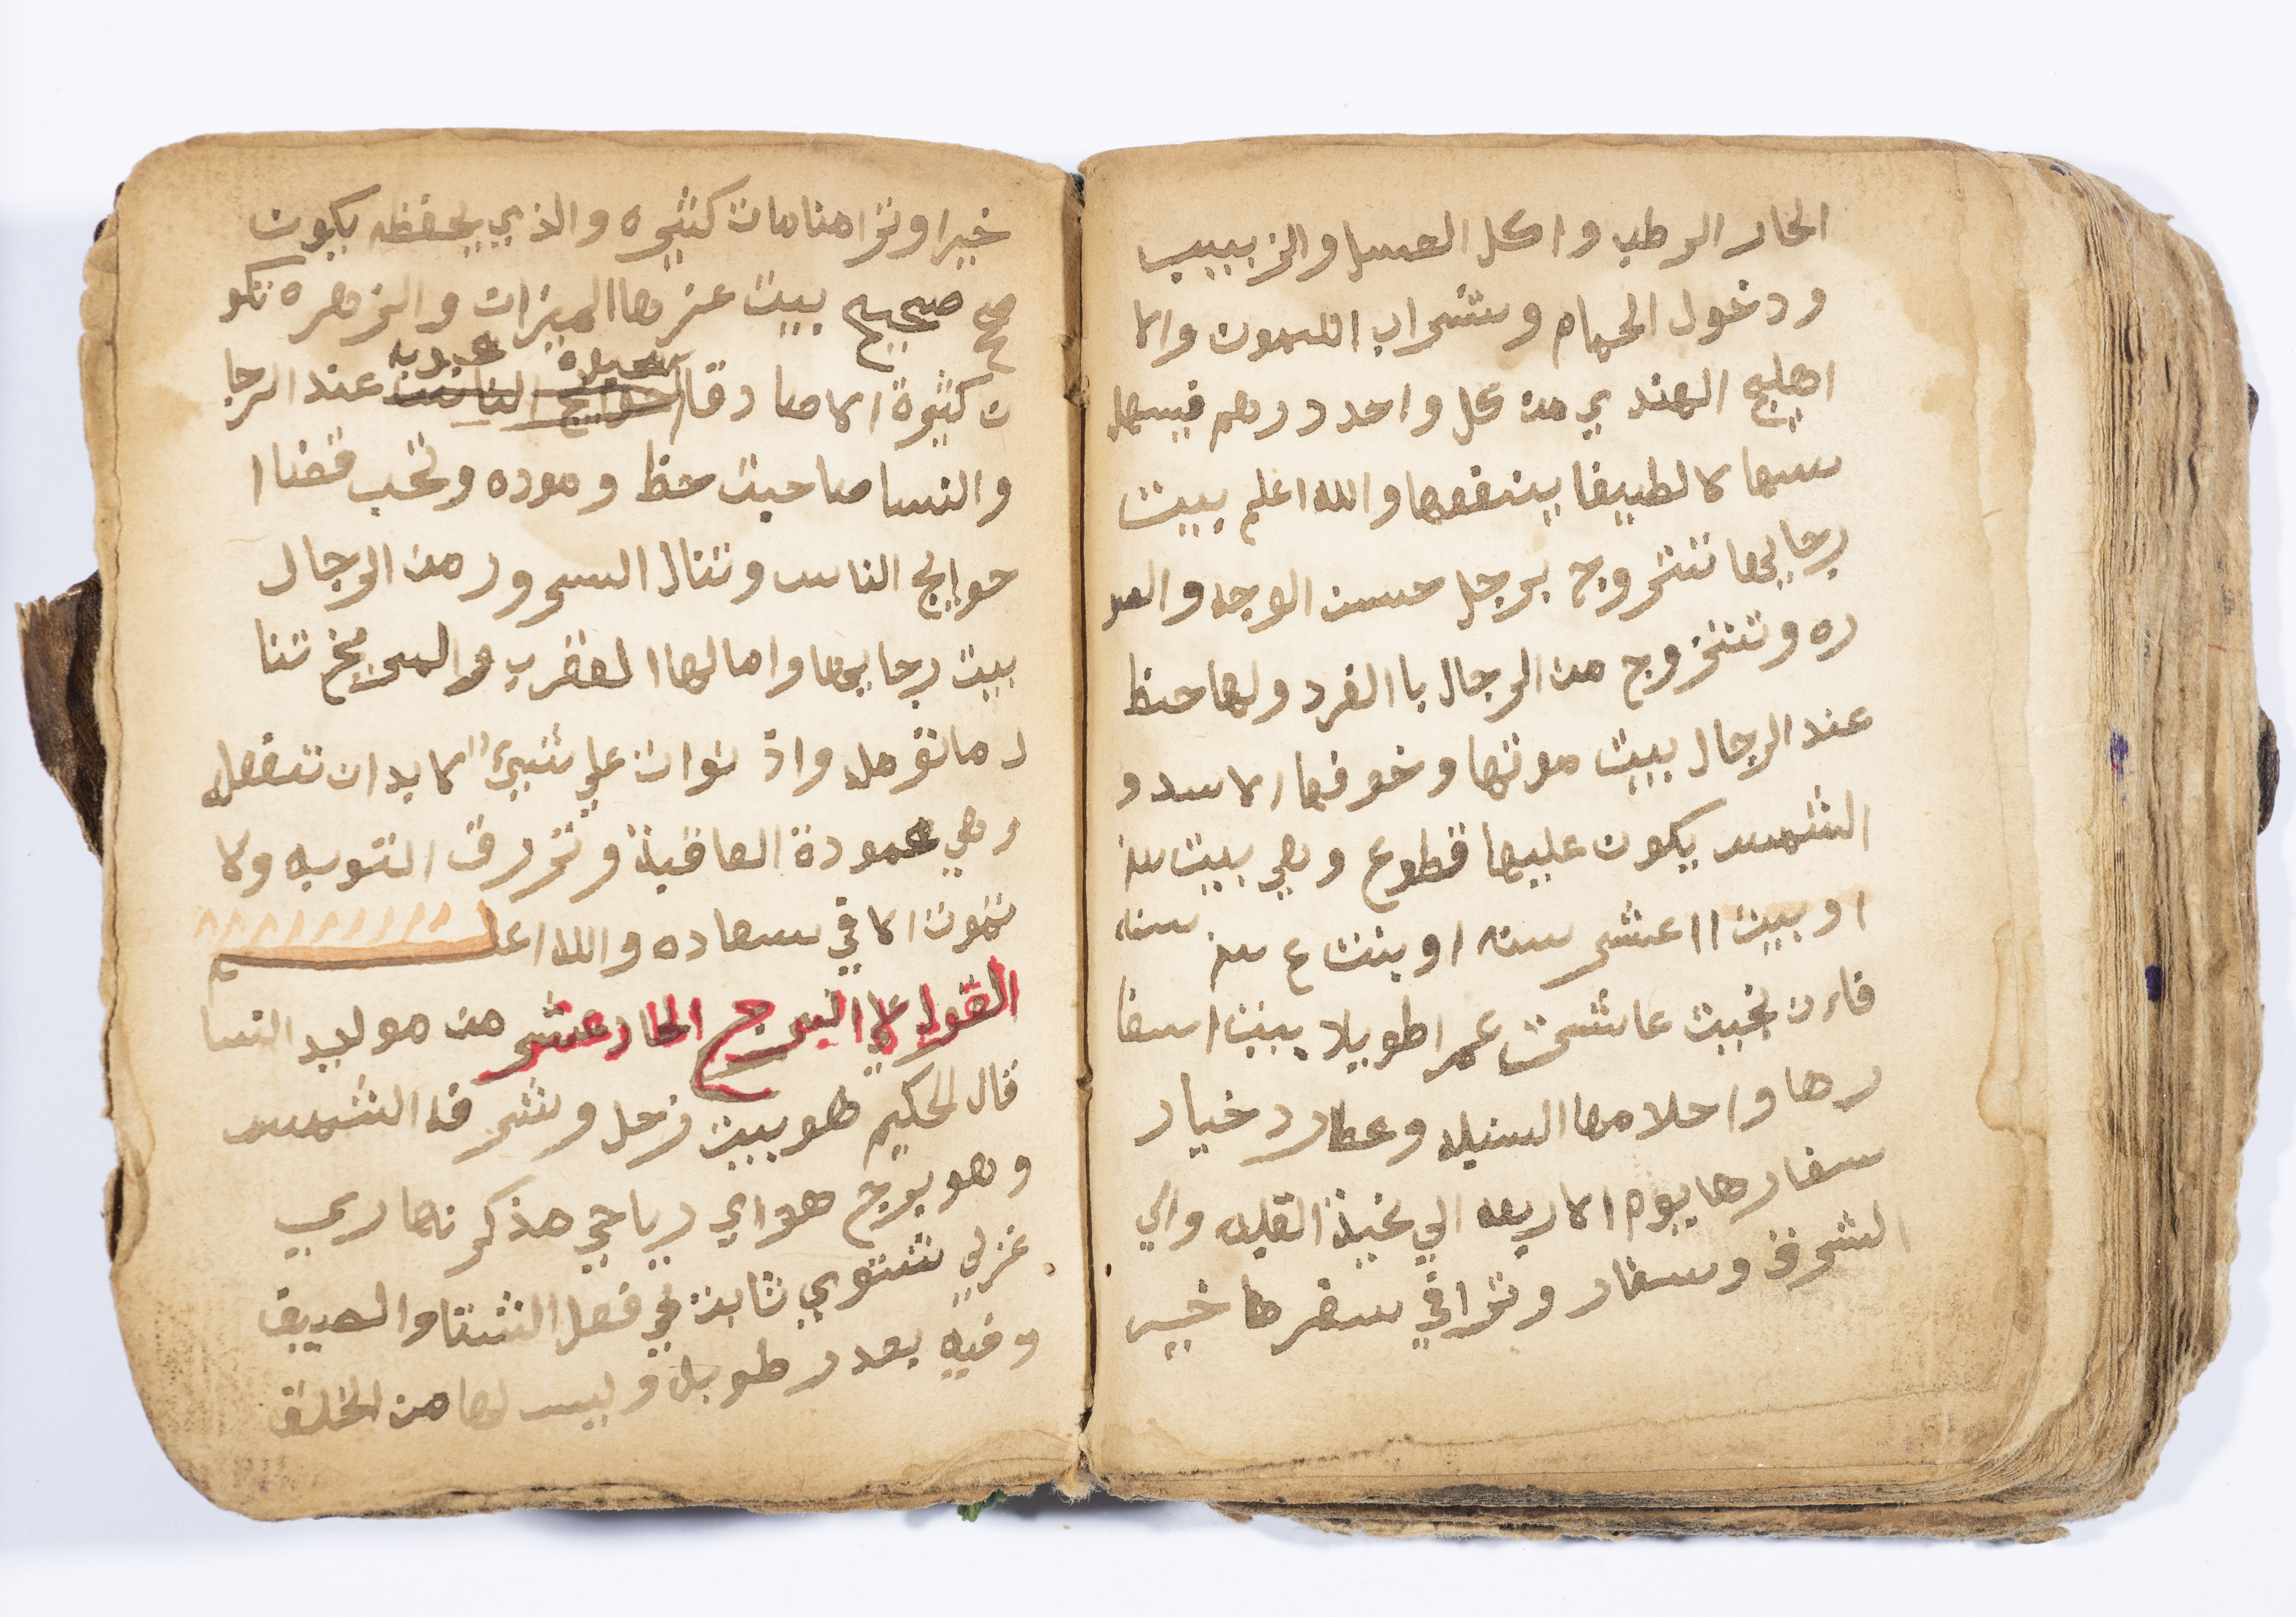 الحار الرطب واكل العسل والزبيب
ودخول الحمام وشراب الليمون والا
اهليج الهندي من كل واحد درهم فيسهل
سهالا لطيفا ينفعها والله اعلم بيت
رجايها تتزوج برجل حسن الوجه والصو
ره وتتزوج من الرجال باالفرد ولها حظ
عند الرجال بيت موتها وخوفها الاسد و
الشمس يكون عليها قطوع وهي بيت سنه
او بيت اا عشر سنه او بنت ع سنه سنه
فاءن نجيت عاشت عمرا طويلا بيت اسفا
رها واحلامها السنبله وعطارد خيار
سفارها يوم الاربعه الي نحية القبله والي
الشرق وسفار وترا في سفرها خير
خيرا وترا منامات كثيره والذي يحفظه يكون
صح صحيح بيت عزها الميزان والزهره تكو
ن كثيرة الاصادقا حوايج الناس عند الرجا
والنسا صاحبت حظ وموده وتحب قضاا
حوايج الناس وتنال السرور من الرجال
بيت رجايها وامالها العقرب والمريخ تنا
ل ماتومله واذ نوات علي شيئ لابد ان تفعله
وهي محمودة العاقبة وترزق التوبه ولا
تموت الا في سعاده والله اعلم
القول علا البرج الحادعشر من مواليد النسا
قال الحكيم هو بيت زحل وشرفه الشمس
وهو برج هواي رياحي مذكر نهاري
غربي شتوي ثابت في فصل الشتا والصيف
وفيه بعدد طويل وليس لها من الخلف